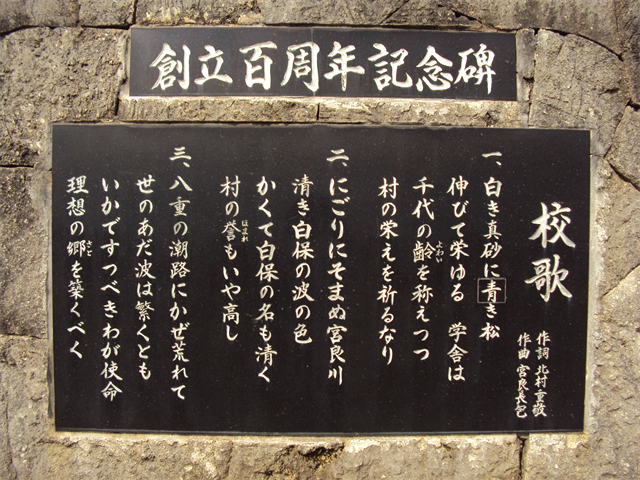 創立百周年記念碑
校歌
作詞 北村重敬
作曲 宮良長包
一、白き真砂に青き松
伸びて栄ゆる 学舎は
千代の齢を称えつつ
よわい
村の栄えを祈るなり
二、にごりにそまぬ宮良川
清き白保の波の色
かくて白保の名も清く
村の誉もいや高し
ほまれ
三、八重の潮路にかぜ荒れて
世のあだ波は繁くとも
いかですつべきわが使命
理想の郷を築くべく
さと